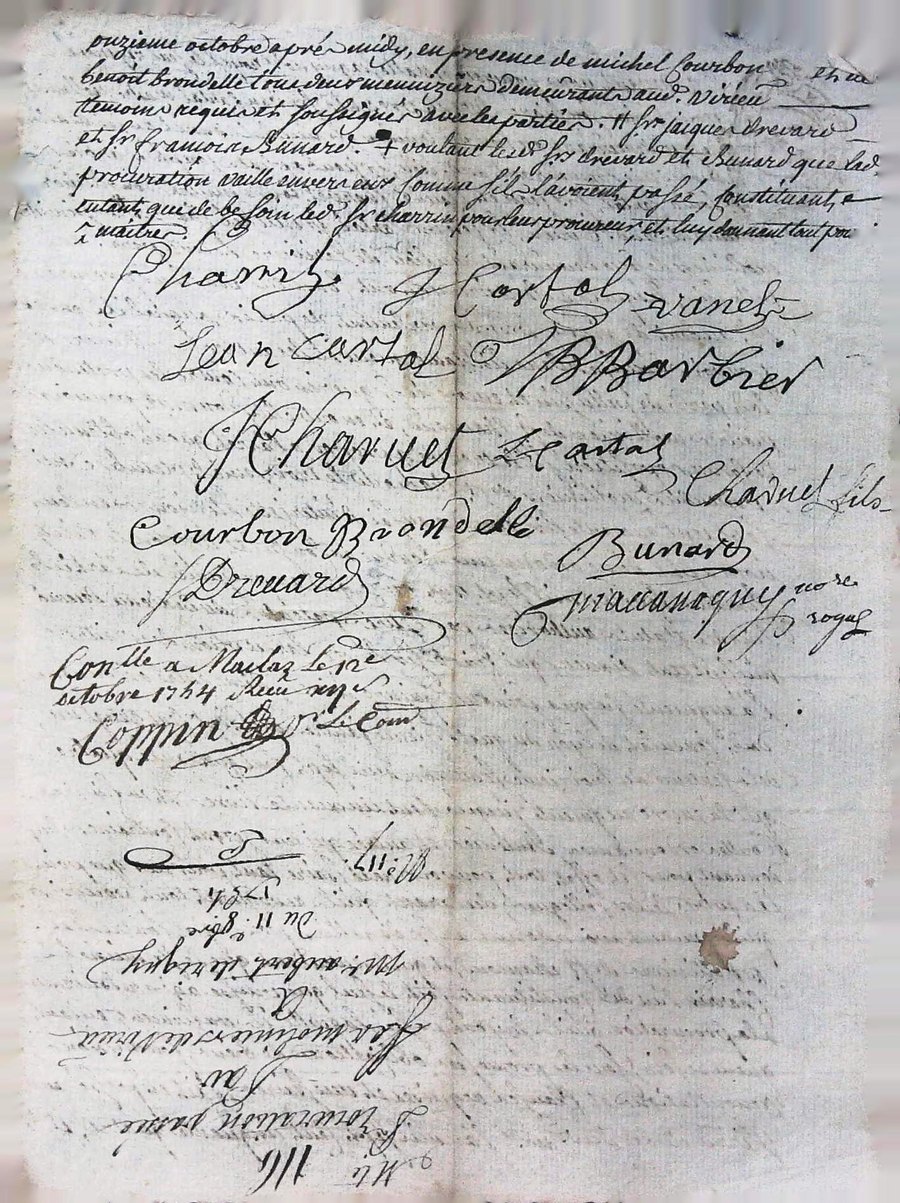 onzieme octobre aprés midy, en presence de michel Courbon
benoit brondelle tous deux menuiziers demeurants aud. virieu
temoins requis et soussignés avec les parties. # srs jacques drevard
et sr francois Bunard. + voulant lesd. srs drevard et Bunard que lad.
procuration vaille envers eux comme s'ils l'avoient passé, constituant, e
entant que de besoin led. sr charrin pour leur procureur, et luy donnant tout pou
Charrin J Cartal vanel
Jean cartal JB Barbier
J Charvet L Cartal
Charvet fils
Courbon Brondelle
Bunard
Drevard
nore
royal
Conllé à Maclas Le 12e
octobre 1754 Receu
Coppin
No. 116
Procuration passé
Par
Srs moliniers de Virieu
A
Mre. aubert de rigny
Du 11. 8bre
1754
No. 117.